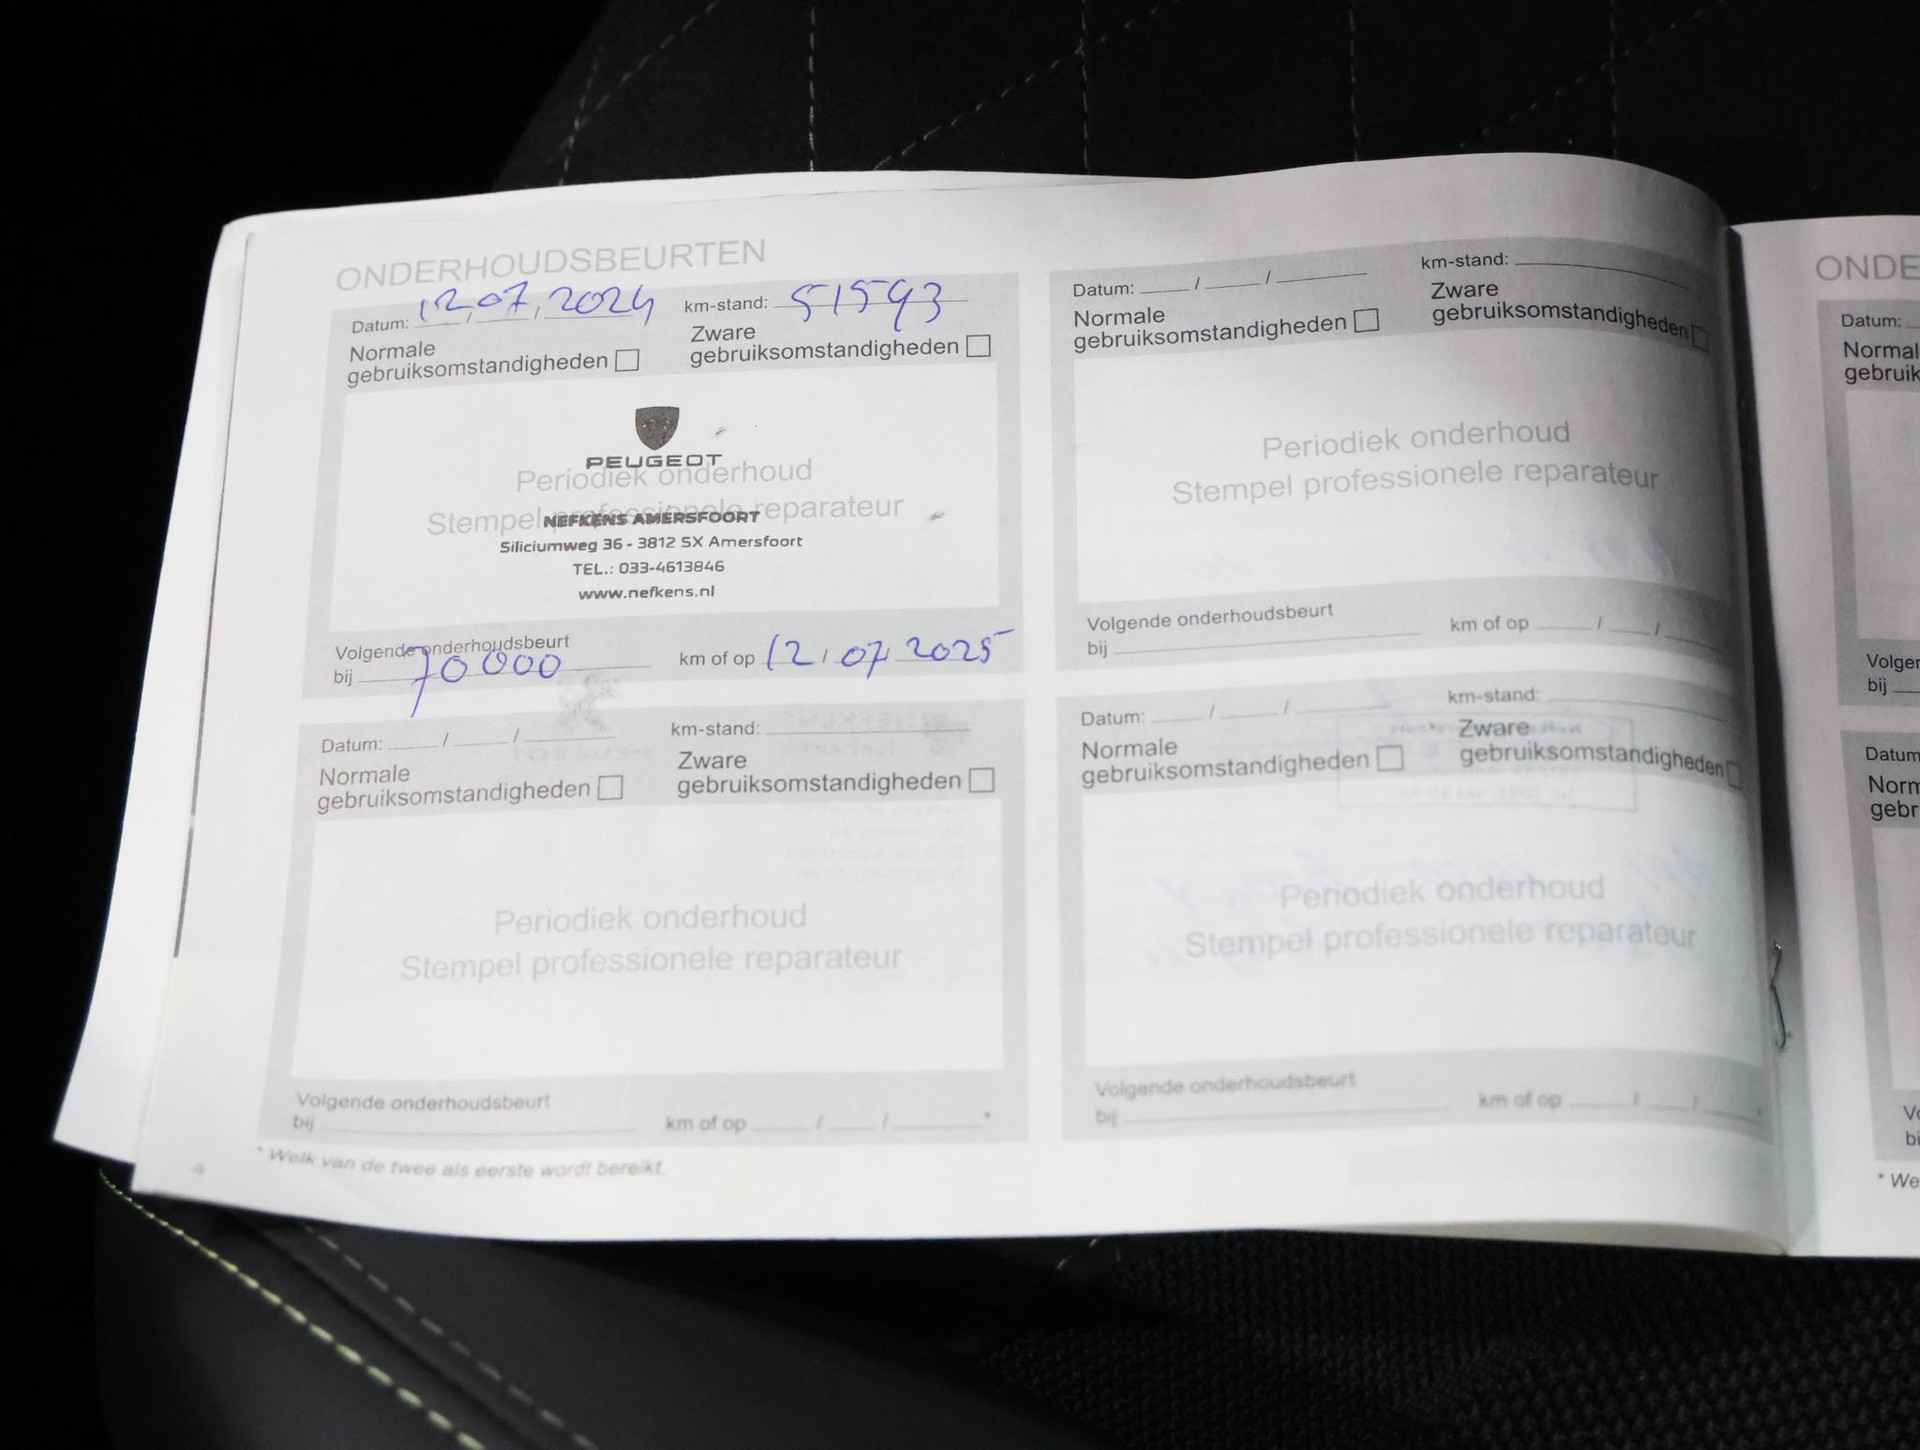 ONDERHOUDSBEURTEN
Datum: 12,07,2024 km-stand: 51593
Normale gebruiksomstandigheden
Zware gebruiksomstandigheden
PEUGEOT
Periodiek onderhoud
Stempel professionele reparateur
NEFKENS AMERSFOORT
Siliciumweg 36 - 3812 SX Amersfoort
TEL.: 033-4613846
www.nefkens.nl
Volgende onderhoudsbeurt
bij 70000 km of op 12/07/2025
Datum: / / km-stand:
Normale gebruiksomstandigheden
Zware gebruiksomstandigheden
Periodiek onderhoud
Stempel professionele reparateur
Volgende onderhoudsbeurt
bij km of op / /
Datum: / / km-stand:
Normale gebruiksomstandigheden
Zware gebruiksomstandigheden
Periodiek onderhoud
Stempel professionele reparateur
Volgende onderhoudsbeurt
bij km of op / / *
Datum: / / km-stand:
Normale gebruiksomstandigheden
Zware gebruiksomstandigheden
Periodiek onderhoud
Stempel professionele reparateur
Volgende onderhoudsbeurt
bij km of op / / *
* Welk van de twee als eerste wordt bereikt.
4
ONDE
Datum:
Normal
gebruik
Volgen
bij
Datum
Norm
gebr
Vo
bi
* We